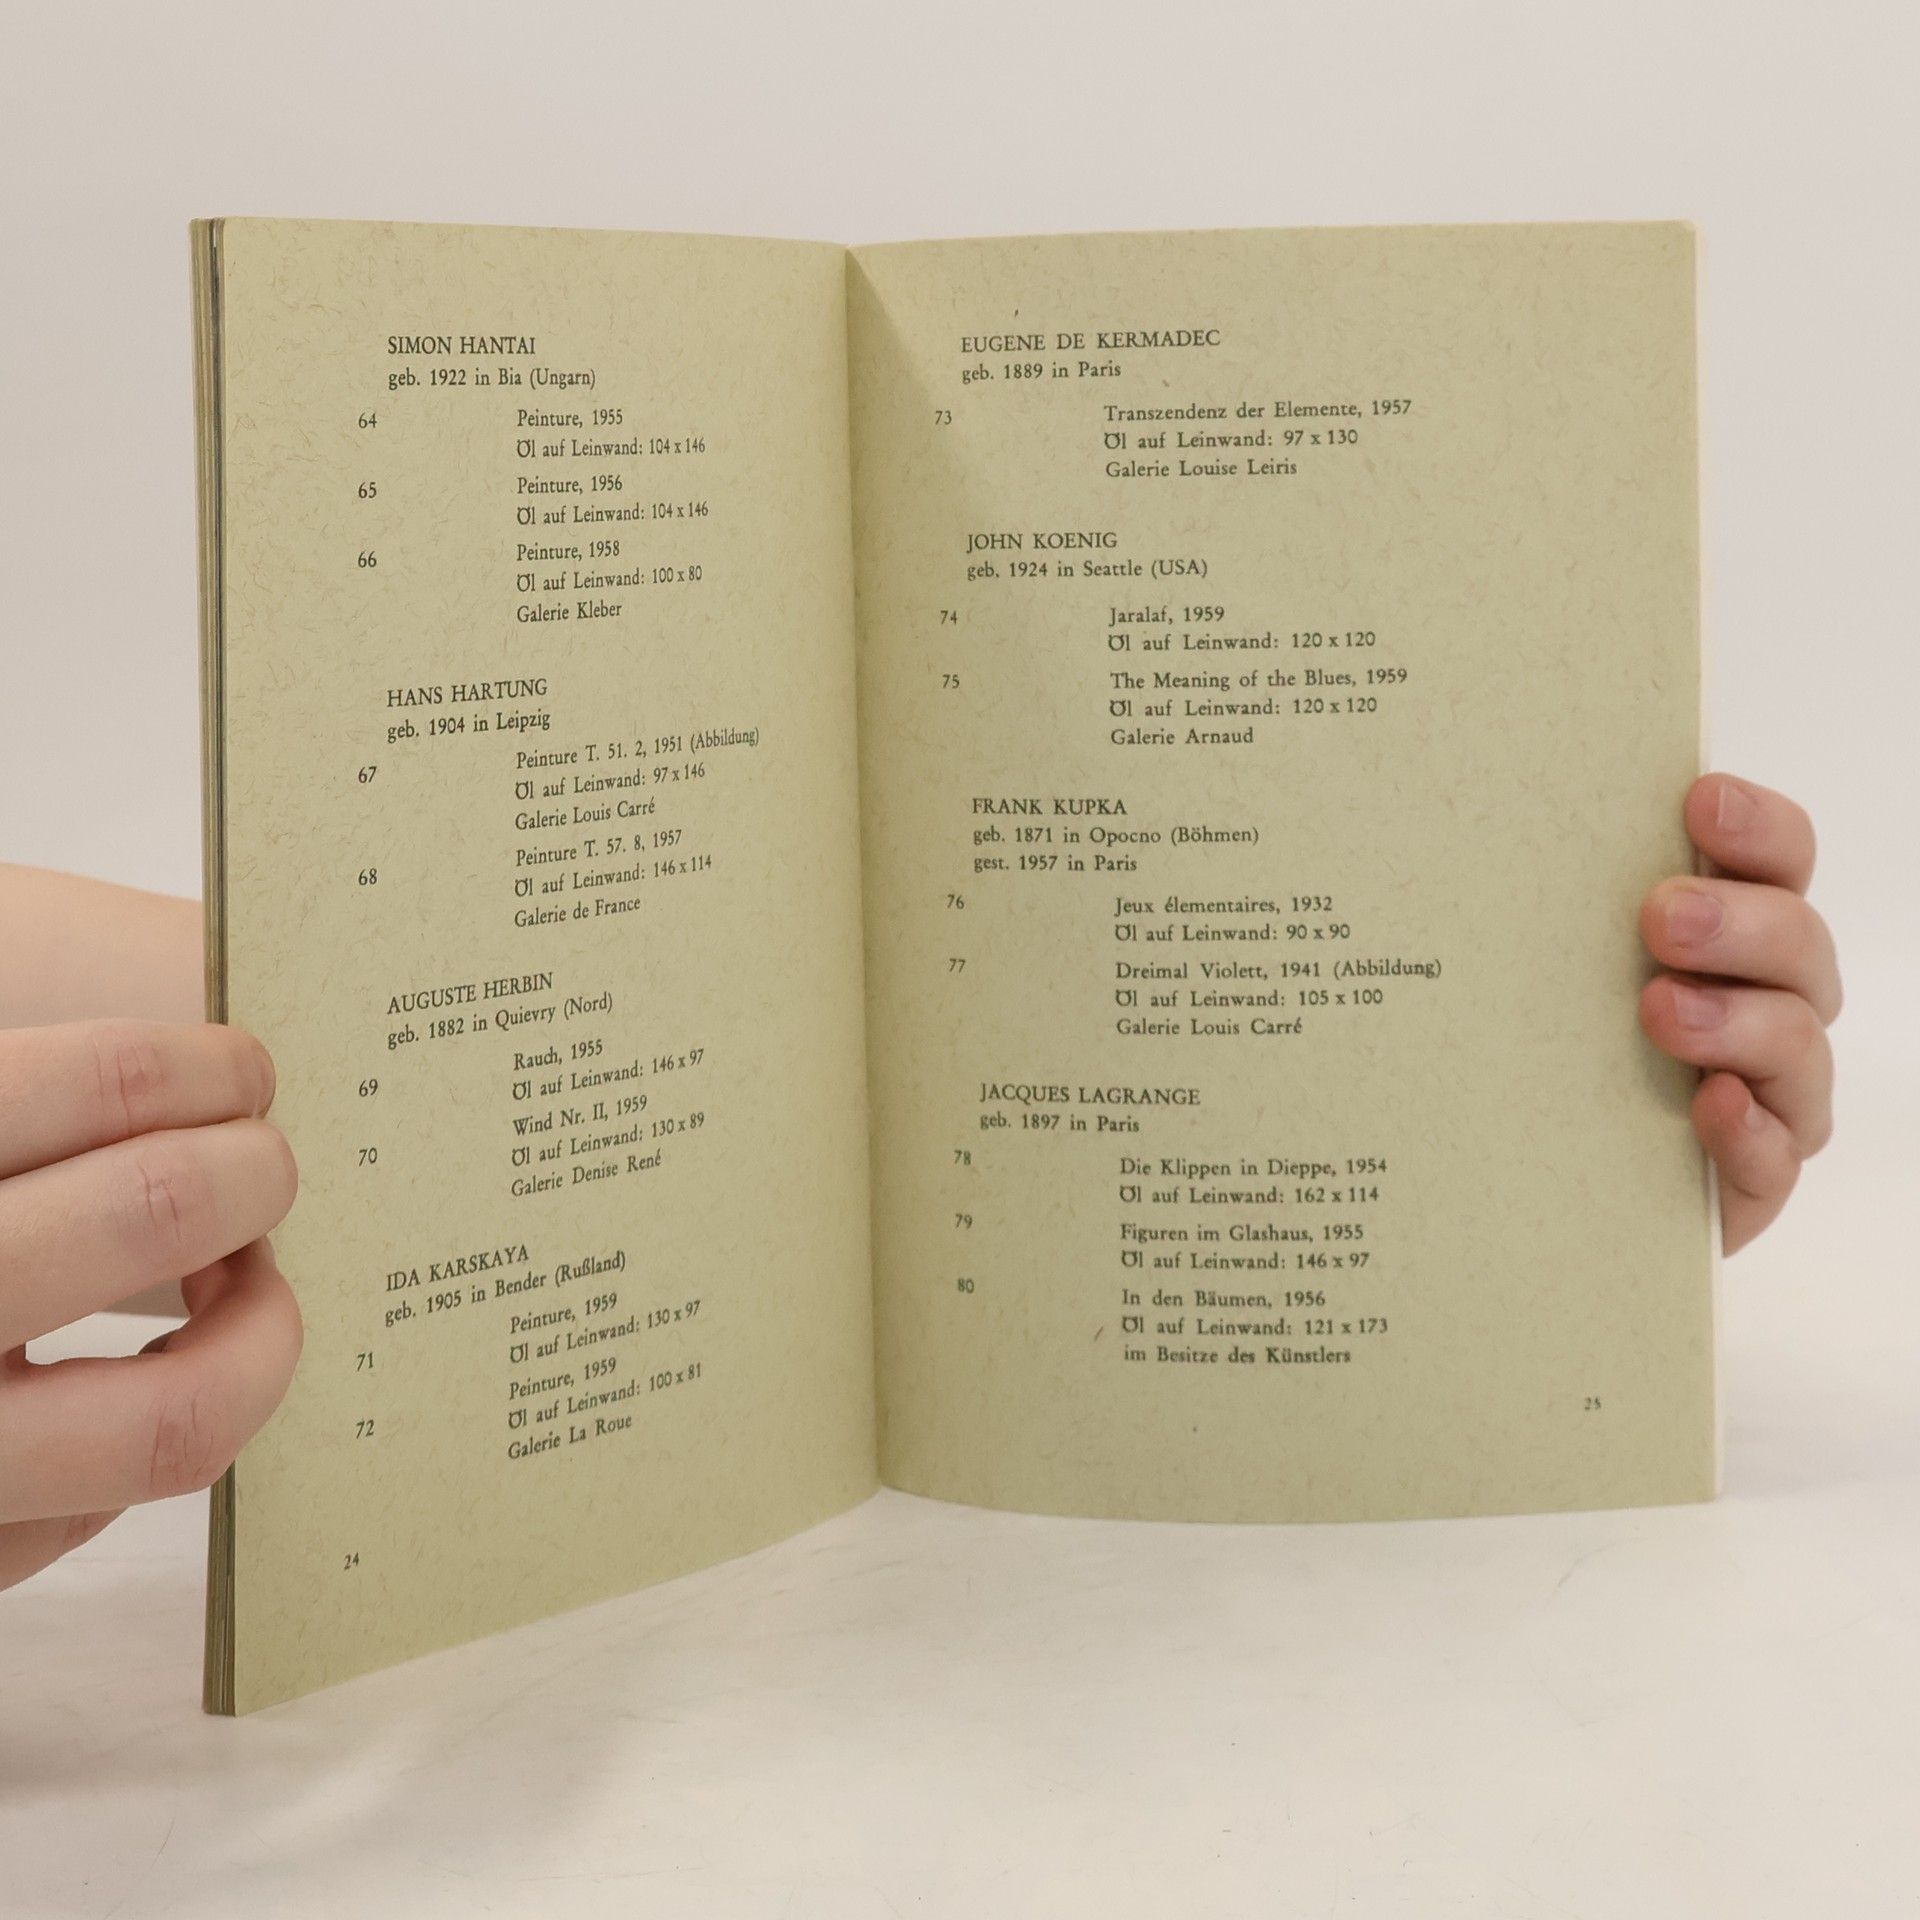 SIMON HANTAI
geb. 1922 in Bia (Ungarn)
64 Peinture, 1955
Öl auf Leinwand: 104 x 146
65 Peinture, 1956
Öl auf Leinwand: 104 x 146
66 Peinture, 1958
Öl auf Leinwand: 100 x 80
Galerie Kleber
HANS HARTUNG
geb. 1904 in Leipzig
67 Peinture T. 51. 2, 1951 (Abbildung)
Öl auf Leinwand: 97 x 146
Galerie Louis Carré
68 Peinture T. 57. 8, 1957
Öl auf Leinwand: 146 x 114
Galerie de France
AUGUSTE HERBIN
geb. 1882 in Quievry (Nord)
69 Rauch, 1955
Öl auf Leinwand: 146 x 97
70 Wind Nr. II, 1959
Öl auf Leinwand: 130 x 89
Galerie Denise René
IDA KARSKAYA
geb. 1905 in Bender (Rußland)
71 Peinture, 1959
Öl auf Leinwand: 130 x 97
72 Peinture, 1959
Öl auf Leinwand: 100 x 81
Galerie La Roue
24
EUGENE DE KERMADEC
geb. 1889 in Paris
73 Transzendenz der Elemente, 1957
Öl auf Leinwand: 97 x 130
Galerie Louise Leiris
JOHN KOENIG
geb. 1924 in Seattle (USA)
74 Jaralaf, 1959
Öl auf Leinwand: 120 x 120
75 The Meaning of the Blues, 1959
Öl auf Leinwand: 120 x 120
Galerie Arnaud
FRANK KUPKA
geb. 1871 in Opocno (Böhmen)
gest. 1957 in Paris
76 Jeux élementaires, 1932
Öl auf Leinwand: 90 x 90
77 Dreimal Violett, 1941 (Abbildung)
Öl auf Leinwand: 105 x 100
Galerie Louis Carré
JACQUES LAGRANGE
geb. 1897 in Paris
78 Die Klippen in Dieppe, 1954
Öl auf Leinwand: 162 x 114
79 Figuren im Glashaus, 1955
Öl auf Leinwand: 146 x 97
80 In den Bäumen, 1956
Öl auf Leinwand: 121 x 173
im Besitze des Künstlers
25